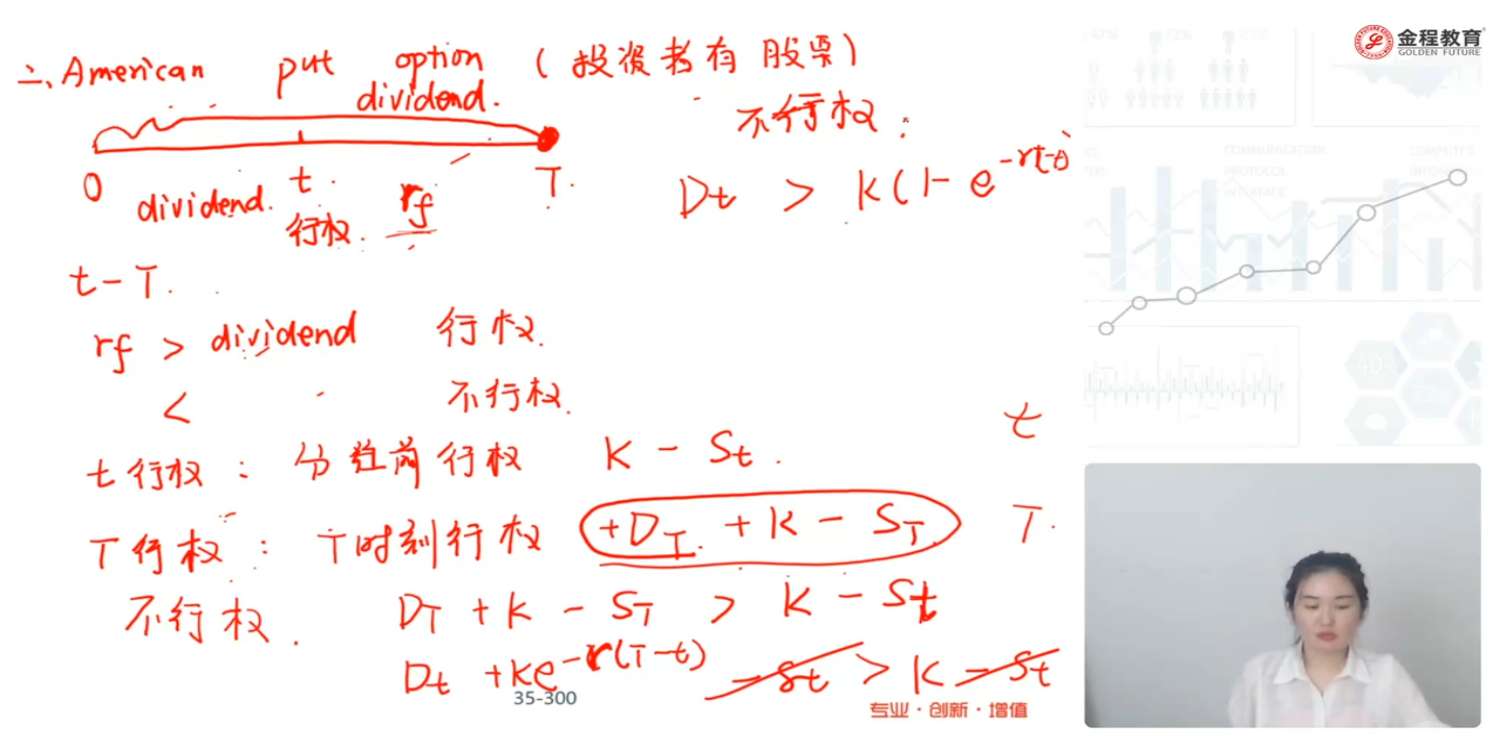 二、American put option (投资者有股票)
dividend.
0 t. T.
dividend. 行权. rf
t-T.
rf > dividend 行权.
< 不行权.
t行权: 分红前行权 K - St.
T行权: T时刻行权 +DT. + K - ST
不行权. DT + K - ST > K - St
Dt + Ke^-r(T-t) - St > K - St
不行权:
Dt > K(1- e^-r(T-t)
t
T.
35-300
专业·创新·增值
金程教育
GOLDEN FUTURE